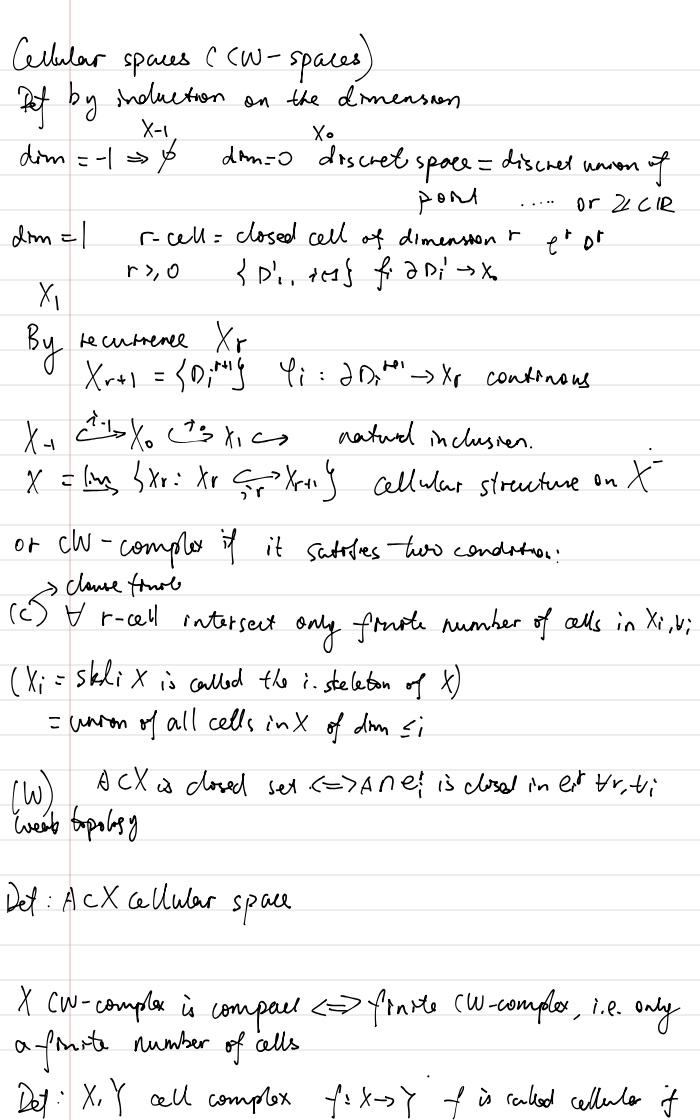 Cellular spaces (CW-spaces)
Def by induction on the dimension
X₋₁ X₀
dim = -1 ⇒ ∅ dim=0 discret space = discret union of
point ..... or ℤ⊂ℝ
dim = 1 r-cell = closed cell of dimension r eʳ Dʳ
r ≥ 0 {D¹ᵢ, i∈I} fᵢ ∂Dᵢ¹ → X₀
X₁
By recurrence Xᵣ
Xᵣ₊₁ = {Dᵢʳ⁺¹} φᵢ : ∂Dᵢʳ⁺¹ → Xᵣ continous
X₋₁ ↪ X₀ ↪ X₁ ↪ natural inclusion.
X = lim→ {Xᵣ : Xᵣ ↪ Xᵣ₊₁} cellular structure on X
or CW-complex if it satisfies two condition:
→ closure finite
(C) ∀ r-cell intersect only finite number of cells in Xᵢ, ∀i
(Xᵢ = skliX is called the i. skeleton of X)
= union of all cells in X of dim ≤ i
(W) A⊂X is closed set <=> A∩eᵢʳ is closed in eᵢʳ ∀r, ∀i
weak topology
Def : A⊂X cellular space
X CW-complex is compact <=> finite CW-complex, i.e. only
a finite number of cells
Def : X, Y cell complex f: X→Y f is called cellular if